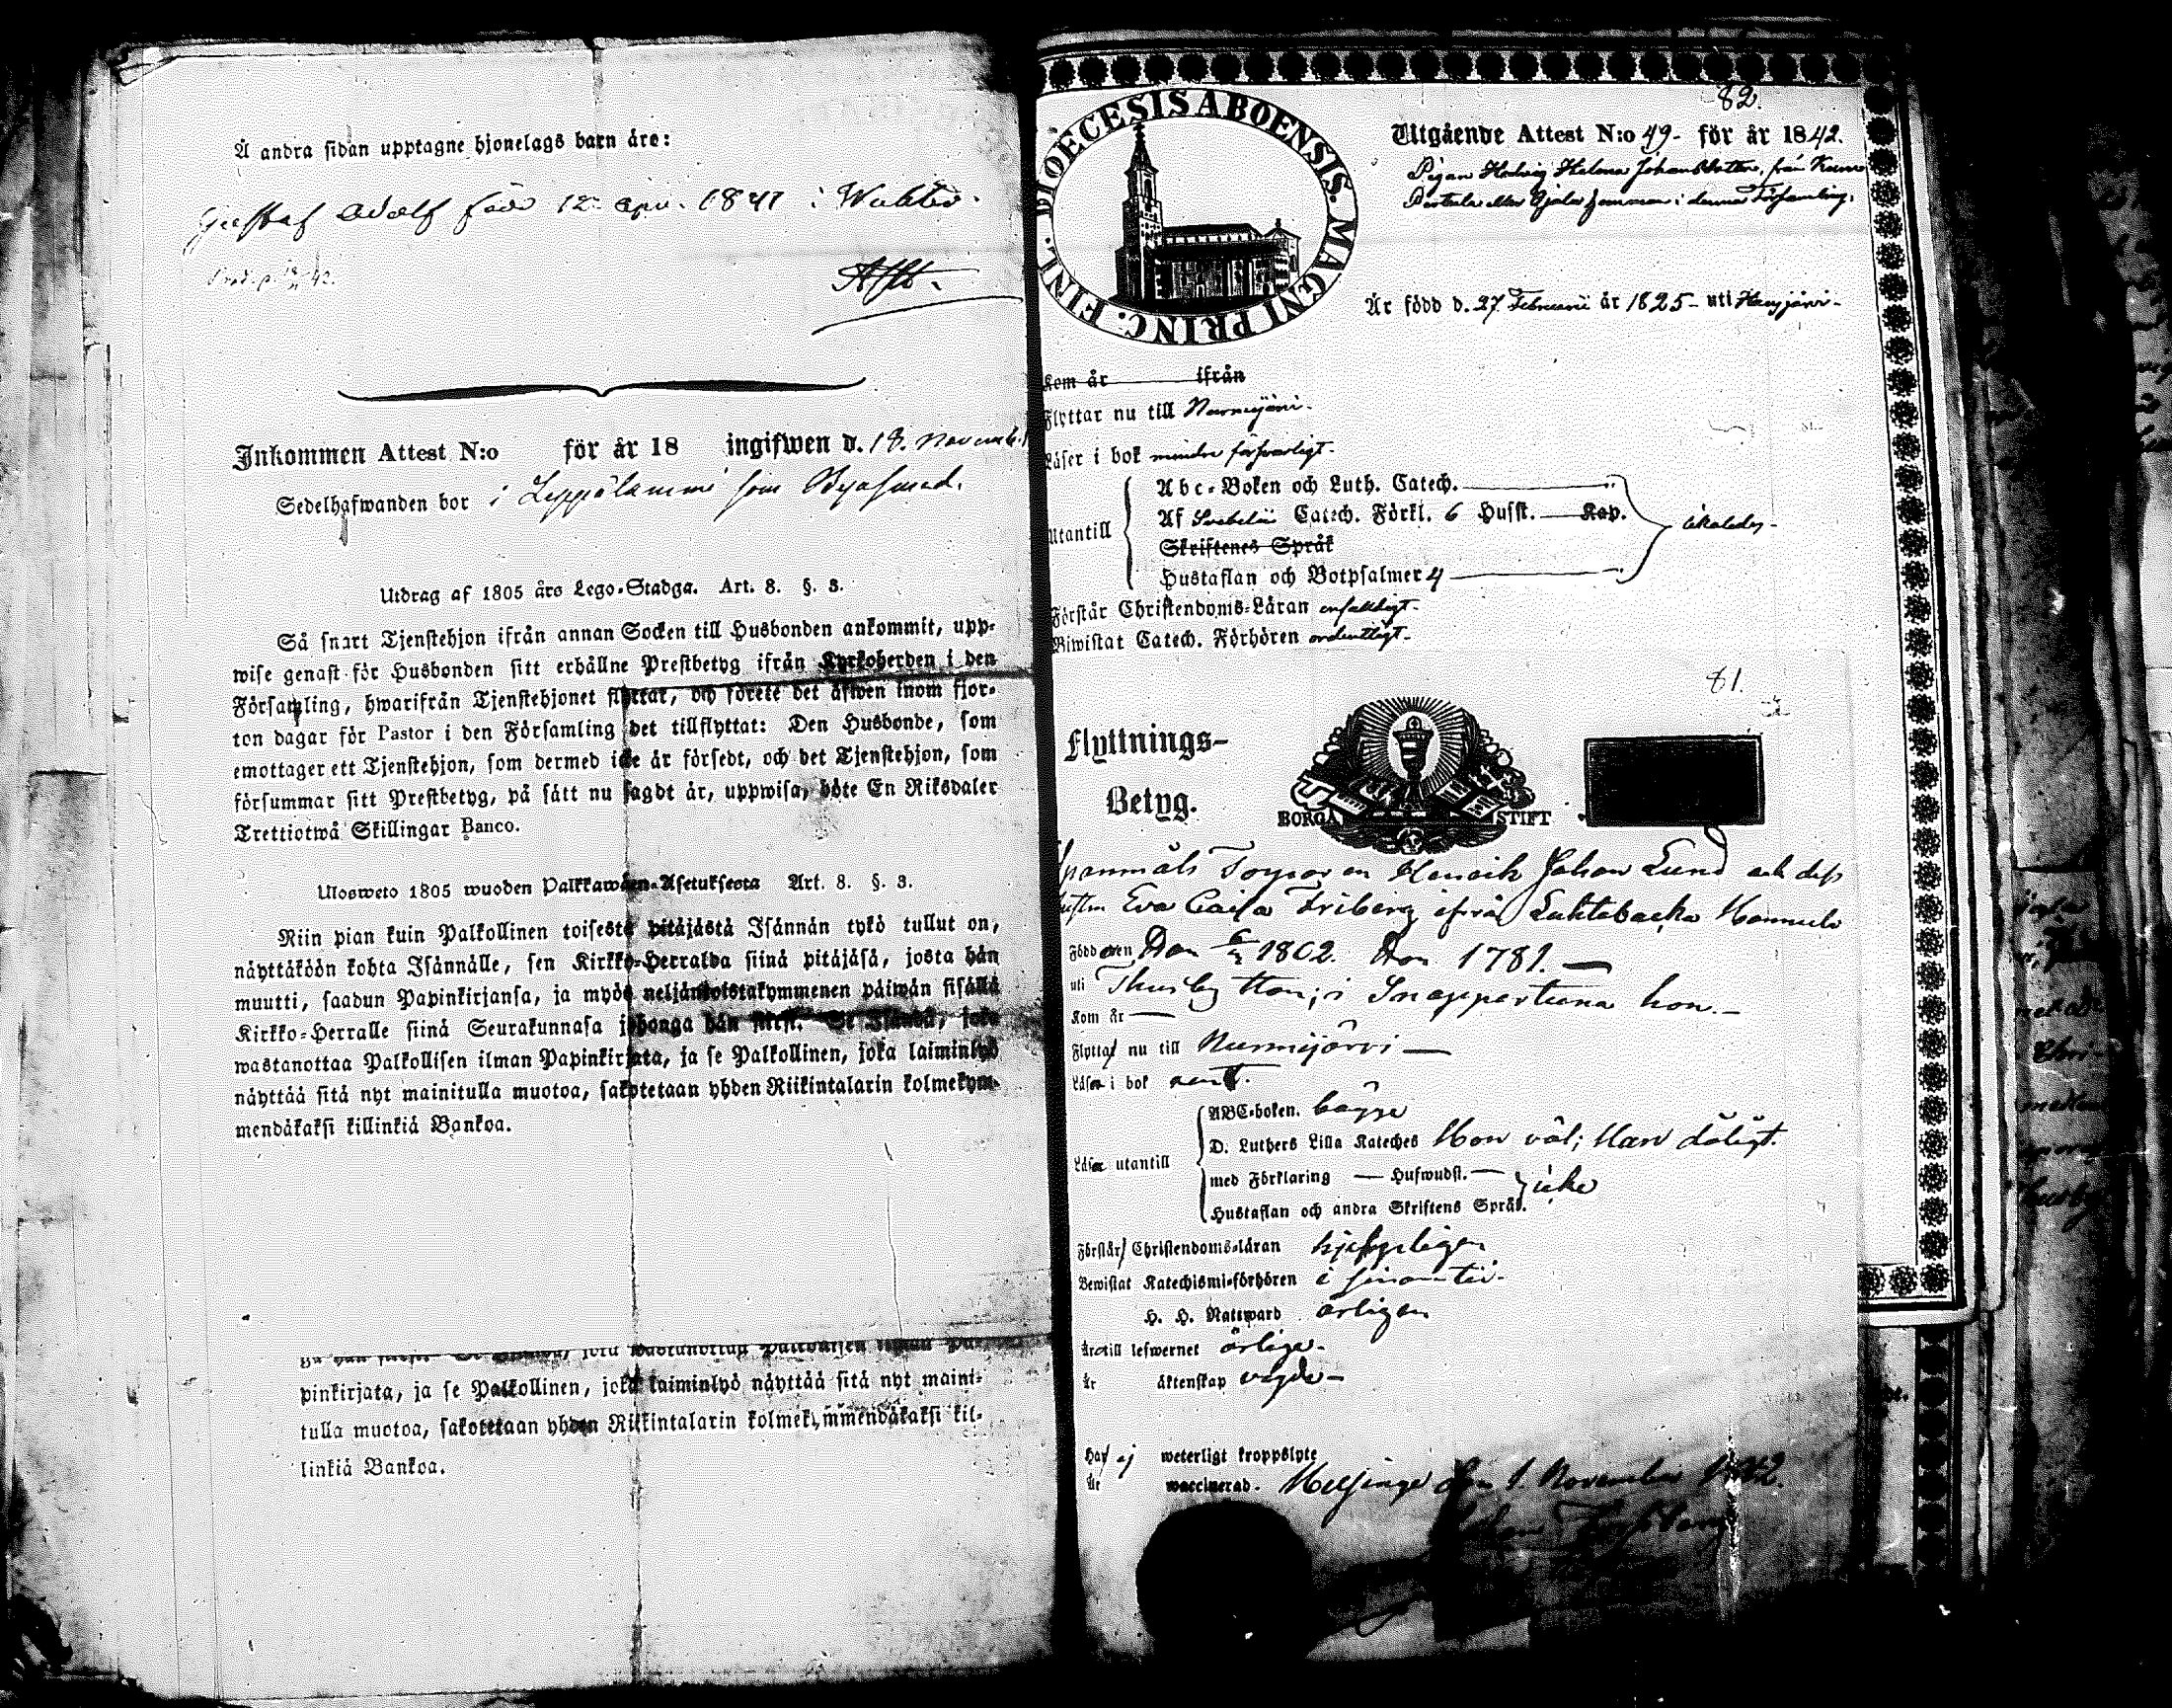 Å andra sidan upptagne hjonelags barn äre:
Gustaf Adolf född 12 apr. 1841 i
Inkommen Attest N:o för år 18 ingifwen d. 18. November
Sedelhafwanden bor i Leppälammi som Bysmed.
Utdrag af 1805 års Lego-Stadga. Art. 8. §. 3.
Så snart Tjenstehjon ifrån annan Socken till Husbonden ankommit, upp-
wise genast för Husbonden sitt erhållne Prestbetyg ifrån Kyrkoherden i den
Församling, hwarifrån Tjenstehjonet flyttat, och förete det äfwen inom fjor-
ton dagar för Pastor i den Församling det tillflyttat: Den Husbonde, som
emottager ett Tjenstehjon, som dermed icke är försedt, och det Tjenstehjon, som
försummar sitt Prestbetyg, på sätt nu sagdt är, uppwisa, böte En Riksdaler
Trettiotwå Skillingar Banco.
Ulosweto 1805 wuoden Palkkawäen-Asetuksesta Art. 8. §. 3.
Niin pian kuin Palkollinen toisesta pitäjästä Isännän tykö tullut on,
näyttäköön kohta Isännälle, sen Kirkko-Herralda siinä pitäjäsä, josta hän
muutti, saadun Papinkirjansa, ja myös neljäntoistakymmenen päiwän sisällä
Kirkko-Herralle siinä Seurakunnasa johonga hän siirsi. Se Isändä, joka
wastanottaa Palkollisen ilman Papinkirjata, ja se Palkollinen, joka laiminlyö
näyttää sitä nyt mainitulla muotoa, sakotetaan yhden Riikintalarin kolmekym-
mendäkaksi killinkiä Bankoa.
pinkirjata, ja se Palkollinen, joka laiminlyö näyttää sitä nyt maini-
tulla muotoa, sakotetaan yhden Riikintalarin kolmekymmendäkaksi kil-
linkiä Bankoa.
82.
DIOECESIS ABOENSIS. MAGNI PRINC. FINL.
Utgående Attest N:o 49- för år 1842.
Pigan Hedvig Helena Johansdotter, från
i denna Församling.
Är född d. 27 Februarii år 1825- uti Hausjärvi-
Kom år ifrån
Flyttar nu till Nurmijärvi.
Läser i bok mindre försvarligt.
Utantill
Abc-Boken och Luth. Catech.
Af Svebelii Catech. Förkl. 6 Hufst. Kap.
Skriftenes Språk
Hustaflan och Botpsalmer 4
Förstår Christendoms-Läran enfaldigt-
Biwistat Catech. Förhören ordentligt-
81.
Flyttnings-
Betyg.
BORGÅ STIFT
Torparen Henrik Johan Lund och dess
hustru Eva Caisa Friberg ifrån Luhtabacka
Född Han 1802. Hon 1781.
uti Thusby Han; i Snappertuna hon.-
Kom år
Flytta nu till Nurmijärvi
Läsa i bok rent.
Läsa utantill
ABC-boken. bägge
D. Luthers Lilla Kateches Hon väl; Han dåligt.
med Förklaring Hufwudst.
Hustaflan och andra Skriftens Språk. icke
Förstår Christendoms-läran hjelpligen
Bewistat Katechismi-förhören i sinom tid.
H. H. Nattward årligen
Äro till lefwernet ärliga.
Är äktenskap vigde
Haf ej weterligt kroppslyte
Är waccinerad. Helsinge den 1. November 1842.